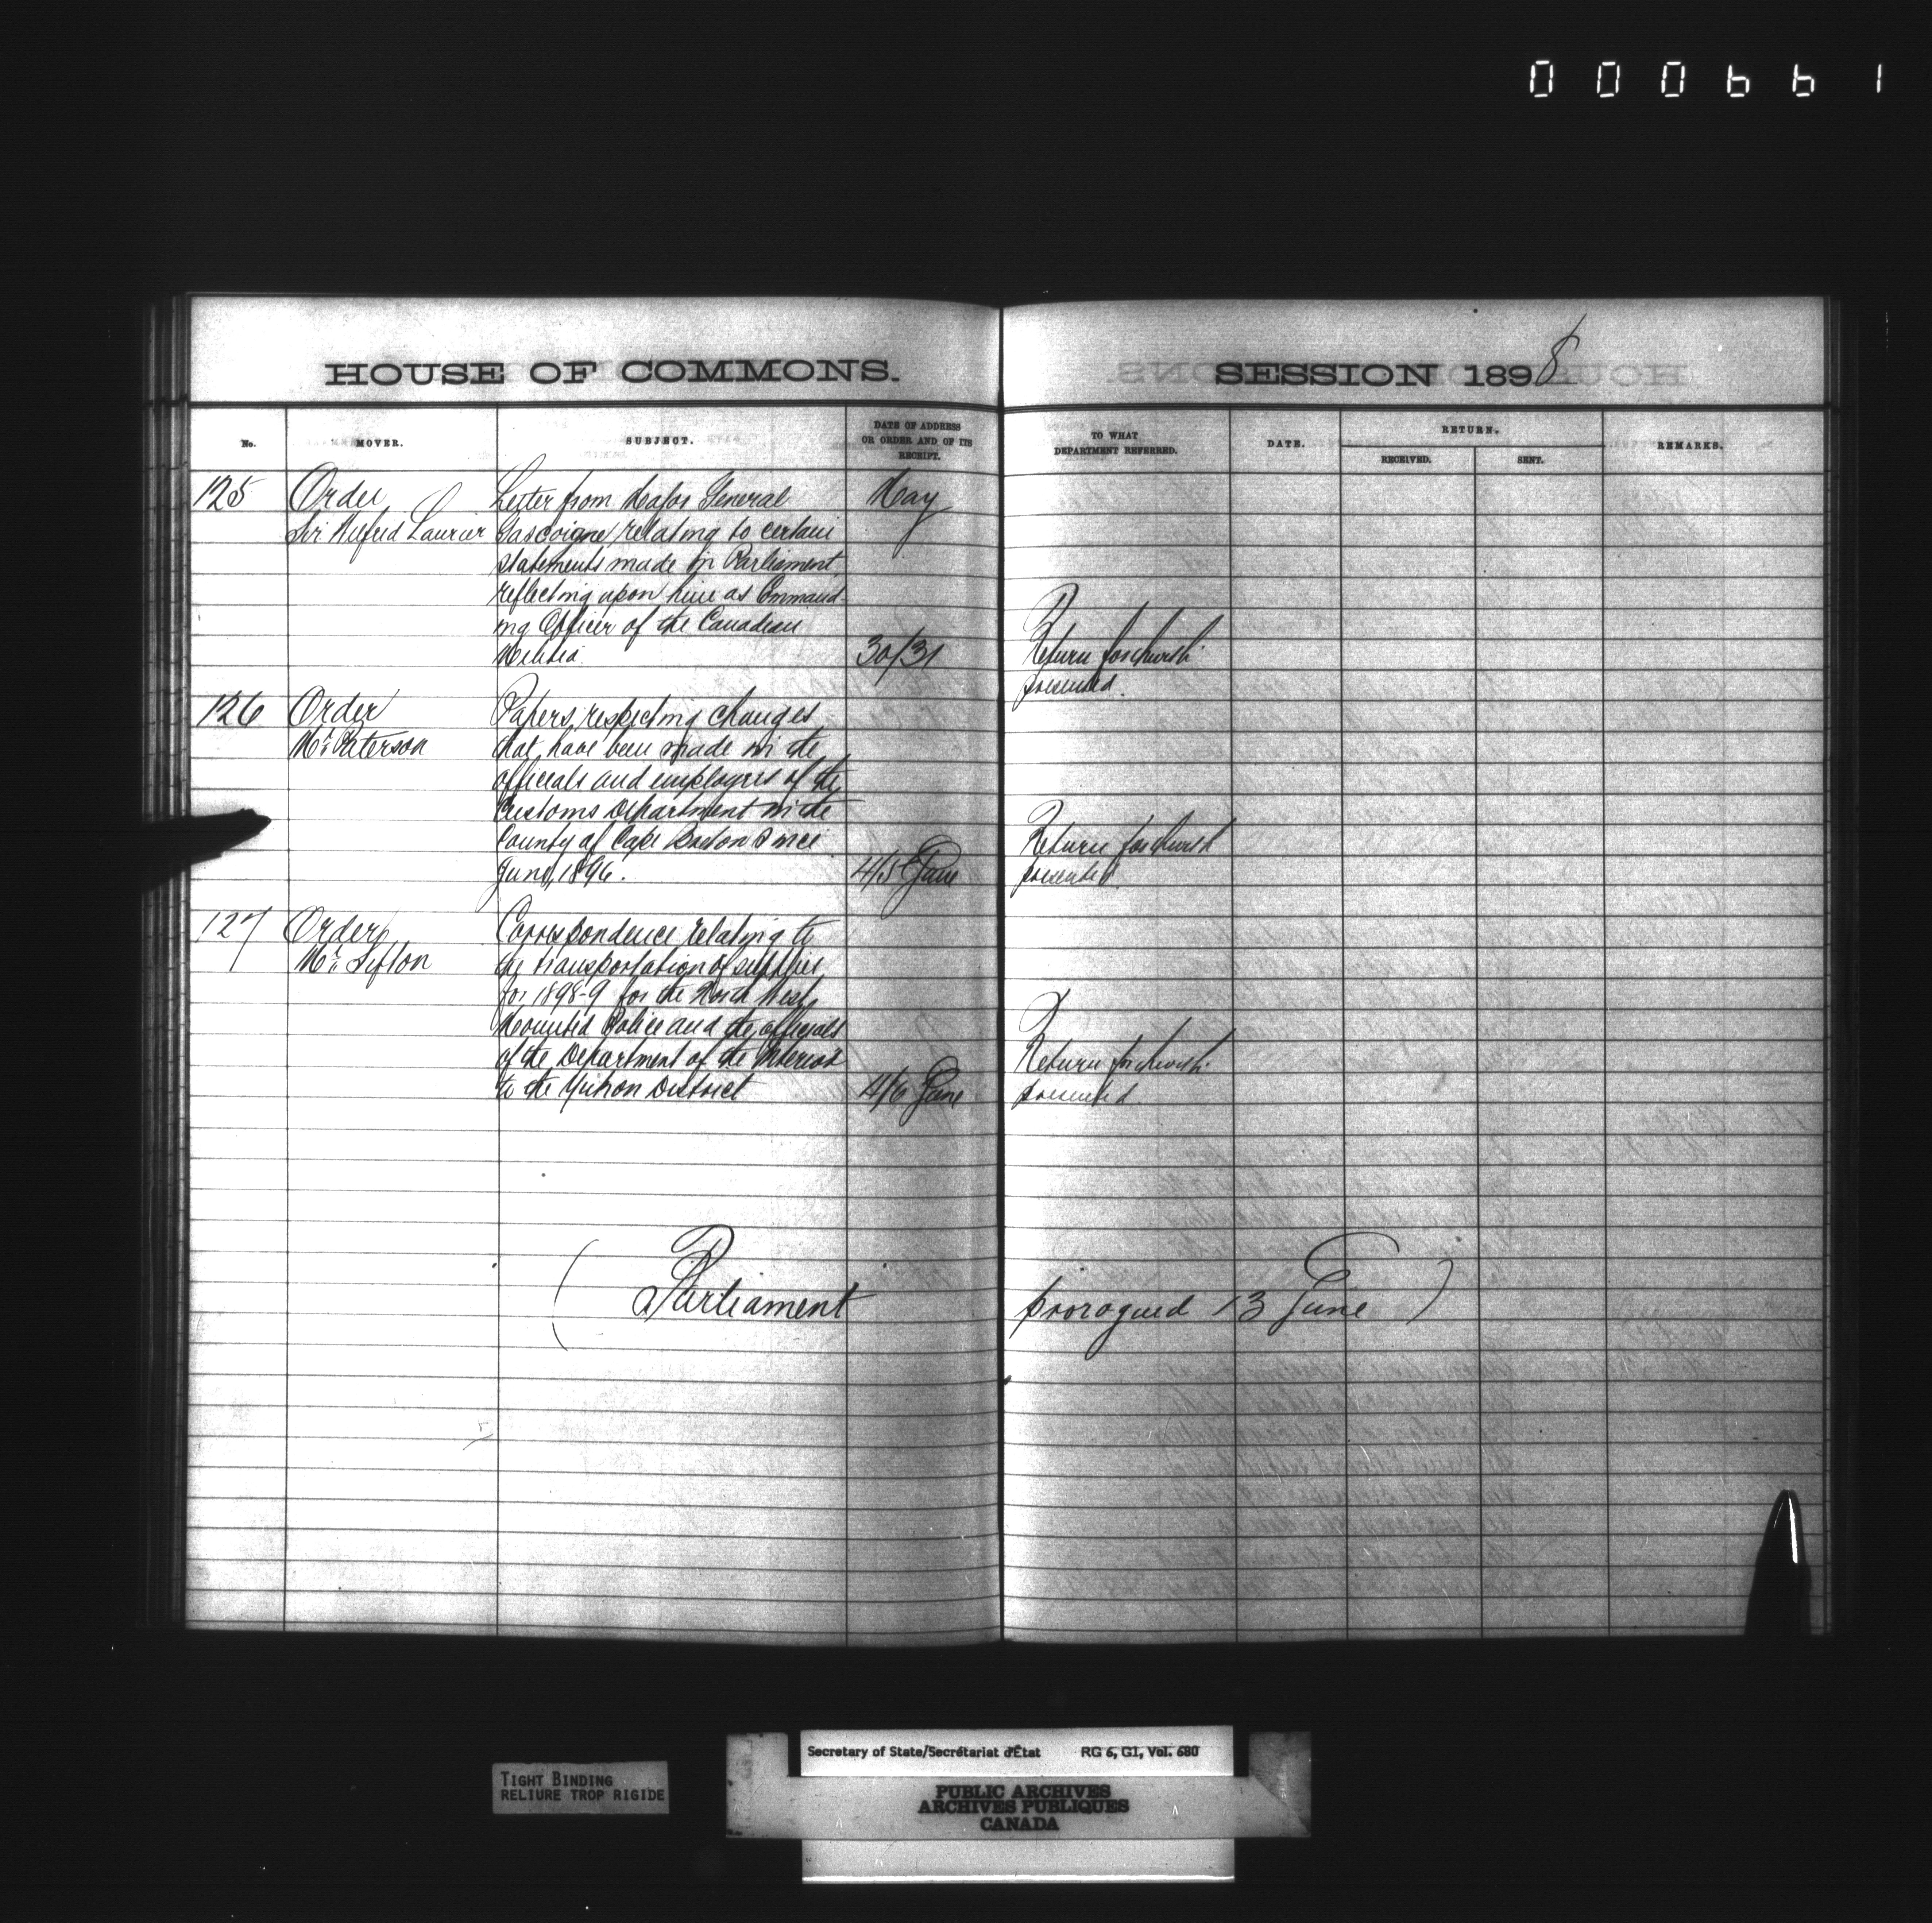 000661
HOUSE OF COMMONS.
SESSION 1898
No.
MOVER.
SUBJECT.
DATE OF ADDRESS
OR ORDER AND OF ITS
RECEIPT.
TO WHAT
DEPARTMENT REFERRED.
DATE.
RETURN.
RECEIVED.
SENT.
REMARKS.
125 Order Letter from Major General May
Sir Wilfrid Laurier Gascoigne relating to certain
statements made in Parliament
reflecting upon him as Command-
ing Officer of the Canadian
Militia 30/31 Return forthwith
presented.
126 Order Papers respecting changes
Mr. Paterson that have been made in the
officials and employees of the
Customs Department in the
County of Cape Breton since Return forthwith
June, 1896. 4/5 June presented.
127 Order Correspondence relating to
Mr. Sifton the transportation of supplies
for 1898-9 for the North West
Mounted Police and the officials
of the Department of the Interior Return forthwith
to the Yukon District 4/6 June presented
(Parliament prorogued 13 June)
TIGHT BINDING
RELIURE TROP RIGIDE
Secretary of State/Secrétariat d'État RG 6, G1, Vol. 680
PUBLIC ARCHIVES
ARCHIVES PUBLIQUES
CANADA